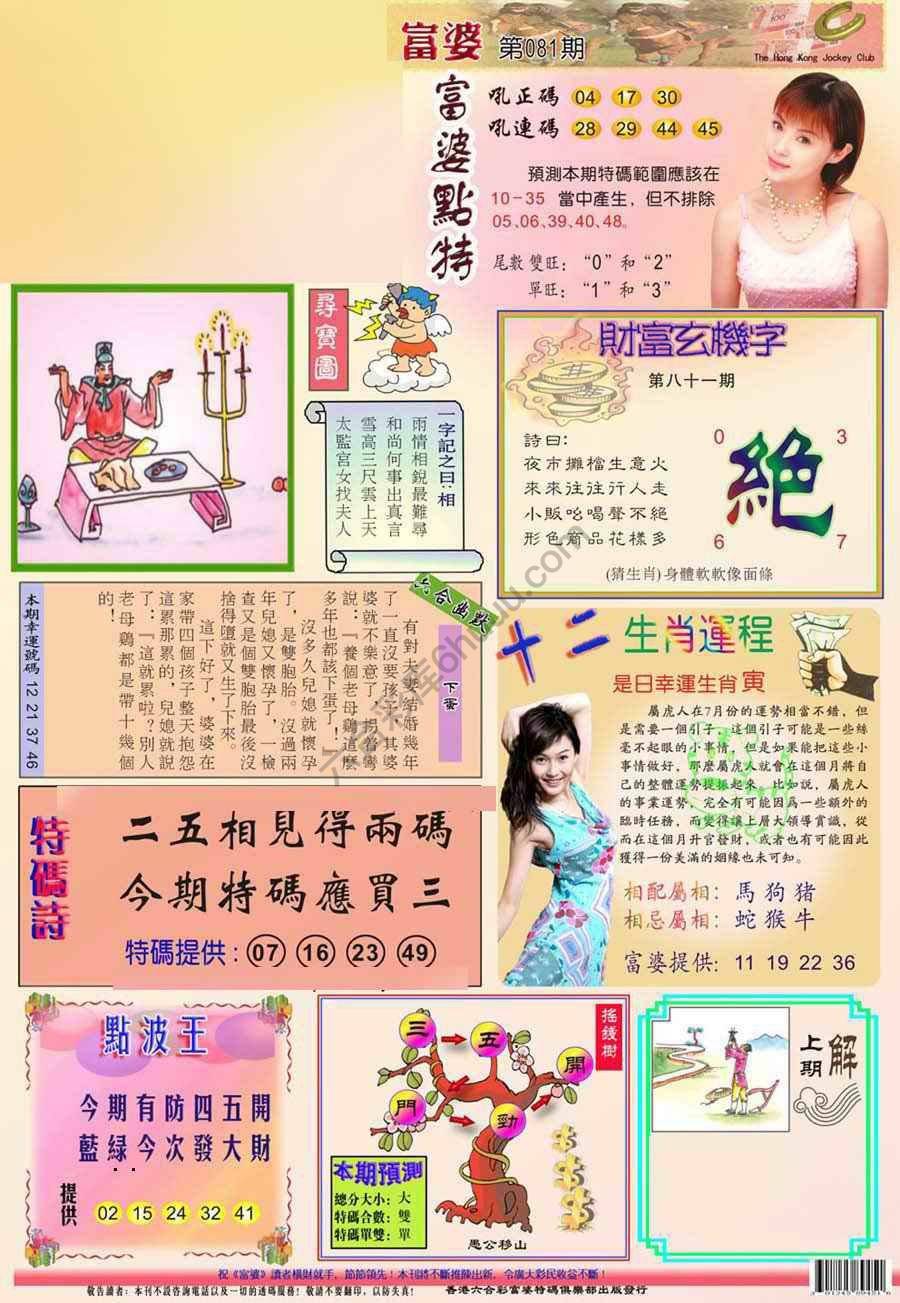 富婆 第081期
The Hong Kong Jockey Club
富婆點特
吼正碼 04 17 30
吼連碼 28 29 44 45
預測本期特碼範圍應該在
10-35 當中產生, 但不排除
05、06、39、40、48。
尾數雙旺: “0”和“2”
單旺: “1”和“3”
尋寶圖
一字記之曰:相
雨情相銳最難尋
和尚何事出真言
雪高三尺雲上天
太監宮女找夫人
財富玄機字
第八十一期
詩曰:
夜市攤檔生意火
來來往往行人走
小販吆喝聲不絕
形色商品花樣多
0 3
絕
6 7
(猜生肖)身體軟軟像面條
六合幽默
下蛋
有對夫妻結婚幾年
了一直沒要孩子,其婆
婆就不樂意了,拐著彎
說:「養個老母鷄這麼
多年也都該下蛋了!
沒多久兒媳就懷孕
了,是雙胞胎。沒過兩
年兒媳又懷孕了,一檢
查又是個雙胞胎最後沒
捨得墮就又生了下來。
這下好了,婆婆在
家帶四個孩子整天抱怨
這累那累的,兒媳就說
了:「這就累啦?別人
老母鷄都是帶十幾個
的!
本期幸運號碼 12 21 37 46
十二生肖運程
是日幸運生肖 寅
屬虎人在7月份的運勢相當不錯，但
是需要一個引子，這個引子可能是一些絲
毫不起眼的小事情，但是如果能把這些小
事情做好，那麼屬虎人就會在這個月將自
己的整體運勢提振起來。比如說，屬虎人
的事業運勢，完全有可能因爲一些額外的
臨時任務，而變得讓上層大領導賞識，從
而在這個月升官發財，或者也有可能因此
獲得一份美滿的姻緣也未可知。
相配屬相: 馬 狗 豬
相忌屬相: 蛇 猴 牛
富婆提供: 11 19 22 36
特碼詩
二五相見得兩碼
今期特碼應買三
特碼提供: 07 16 23 49
點波王
今期有防四五開
藍綠今次發大財
提供 02 15 24 32 41
搖錢樹
三 五 開
門 勁
本期預測
總分大小: 大
特碼合數: 雙
特碼單雙: 單
愚公移山
上期解
祝《富婆》讀者橫財就手，節節領先！本刊將不斷推陳出新，令廣大彩民收益不斷！
敬告讀者：本刊不設咨詢電話以及一切的透碼服務！敬請不要翻印，以防失真！ 香港六合彩富婆特碼俱樂部出版發行